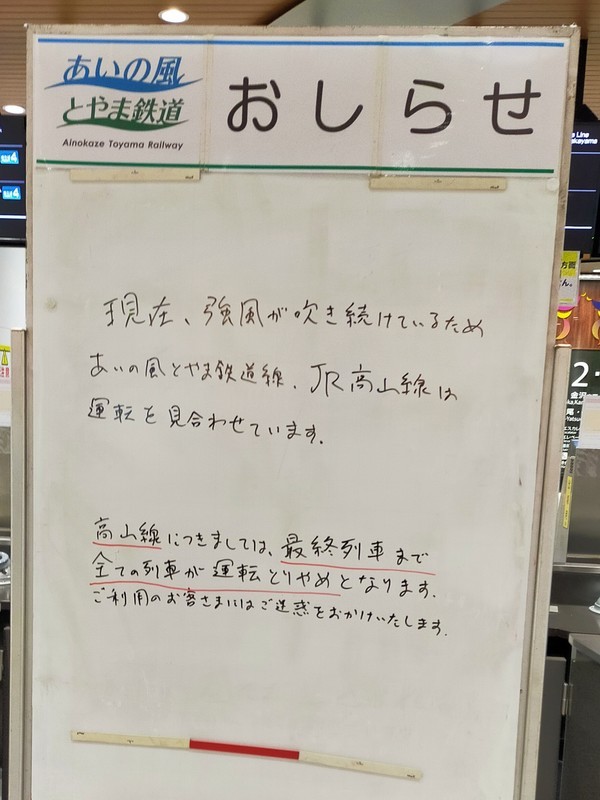 あいの風
とやま鉄道
Ainokaze Toyama Railway
おしらせ
現在、強風が吹き続けているため
あいの風とやま鉄道線、JR高山線は
運転を見合わせています。
高山線につきましては、最終列車まで
全ての列車が運転とりやめとなります。
ご利用のお客さまにはご迷惑をおかけいたします。